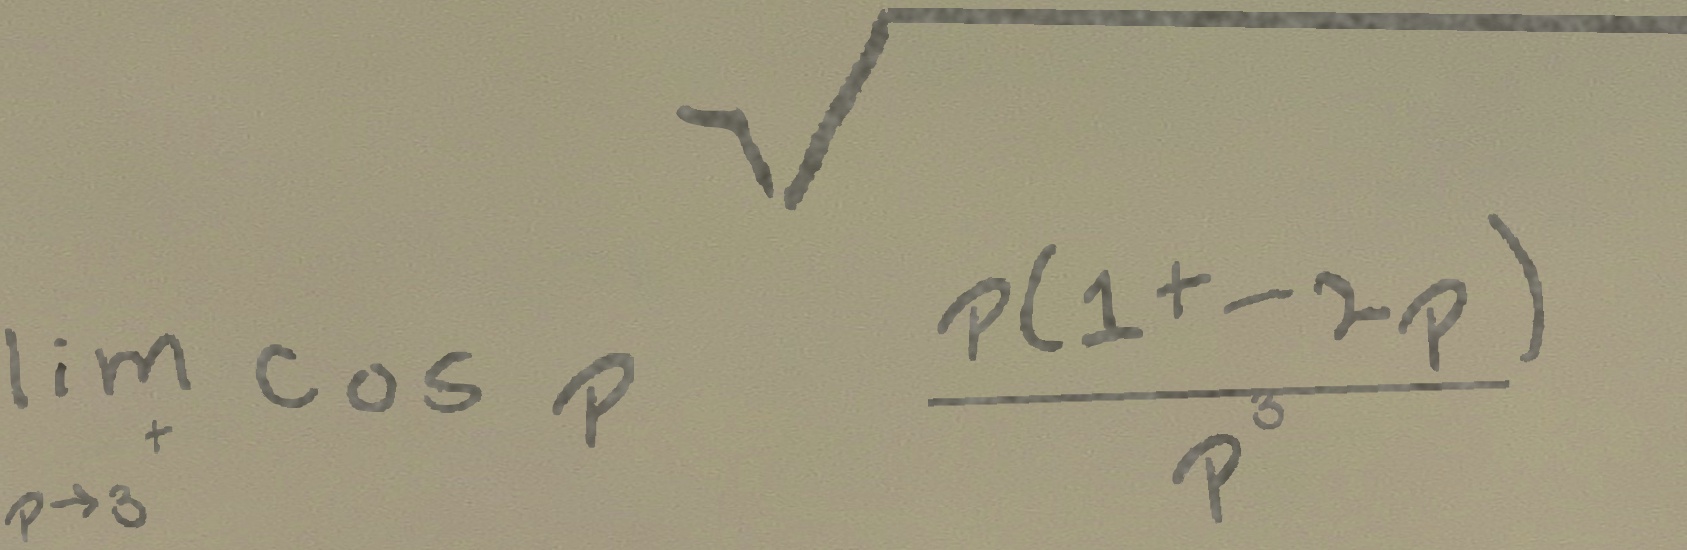 \lim_{p \to 3^+} \cos p \sqrt{\frac{p(1+-2p)}{p^3}}